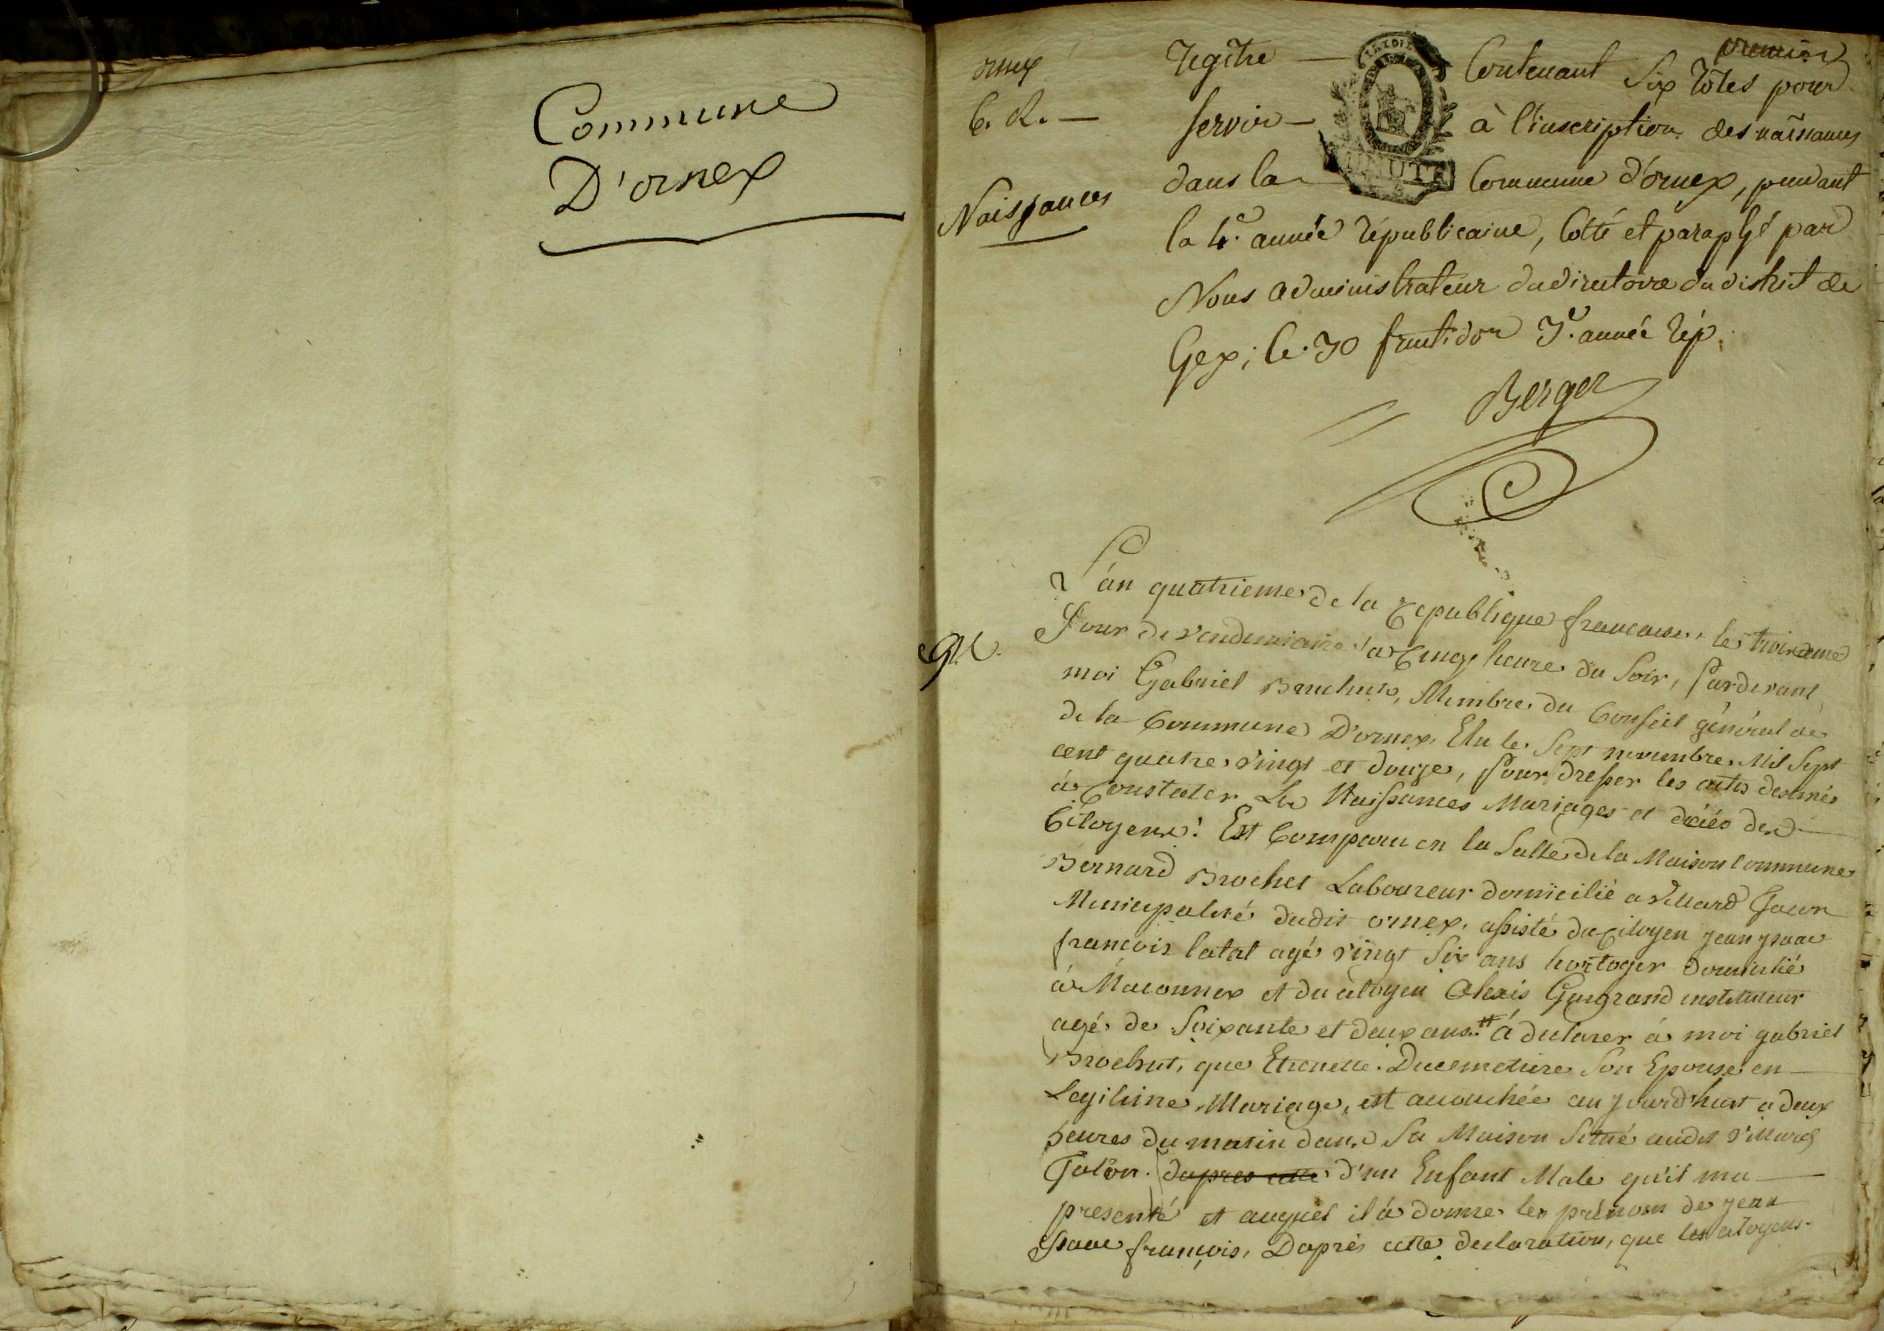 Commune
D'ornex
ornex
Naissances
premier
Registre Contenant Six rôles pour
servir à l'inscription des naissances
dans la Commune d'ornex, pendant
la 4e. année républicaine, Cotté et paraphé par
Nous administrateur du directoire du district de
Gex; le 30 fructidor 3e. année rép.
Berger
L'an quatrieme de la republique francaise, le troisieme
Jour de vendemiaire a Cinq heure du Soir, Pardevant
moi Gabriel Brochut, Membre du Conseil général de
de la Commune D'ornex, Elu le Sept novembre Mil Sept
cent quatre vingt et douze, pour dresser les actes destinés
à Constater Les Naissances Mariages et décés des
Citoyens: Est Comparu en la Salle de la Maison Commune
Bernard Brochet Laboureur domicilié a Villard
Municipalité dudit ornex, assisté du Citoyen jean jsaac
francois latat agé vingt Six ans horloger domicilié
à Maconnex et du citoyen Alexis instituteur
agé de Soixante et deux ans. à declarer à moi gabriel
Brochut, que Etienette Ducemetiere Son Epouse en
Legitime Mariage, est accouchée aujourd'huit a deux
heures du matin dans Sa Maison Situé audit Villard
d'apres cette d'un Enfant Male qu'il ma
presenté et auquel il à donné les prénom de jean
Isaac françois, D'après cette declaration, que les citoyens